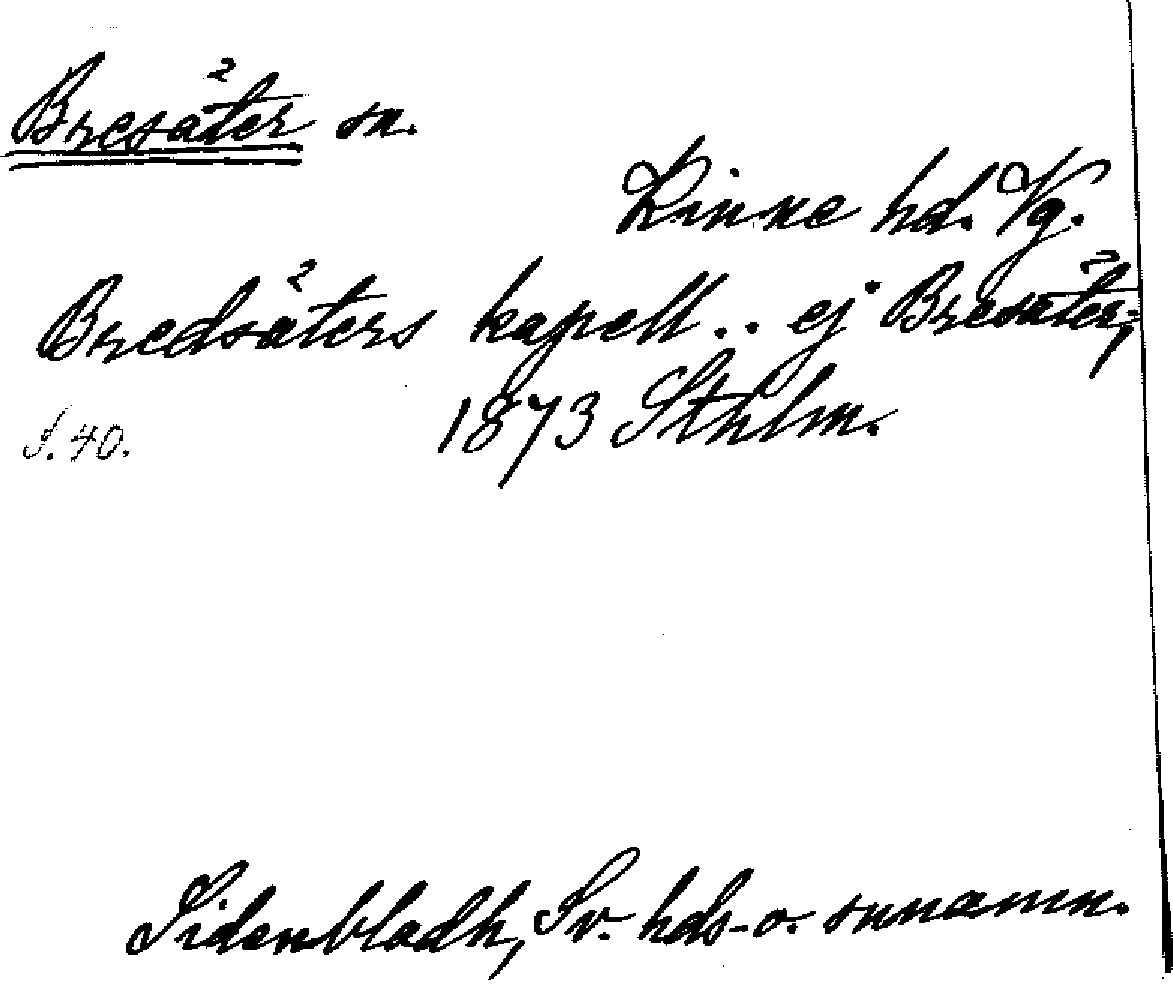 Bresäter sn.
Kinne hd. Vg.
Bredsäters kapell .. ej Bresäter,
S. 40. 1873 Sthlm.
Sidenbladh, Sv. hds- o. snnamn.